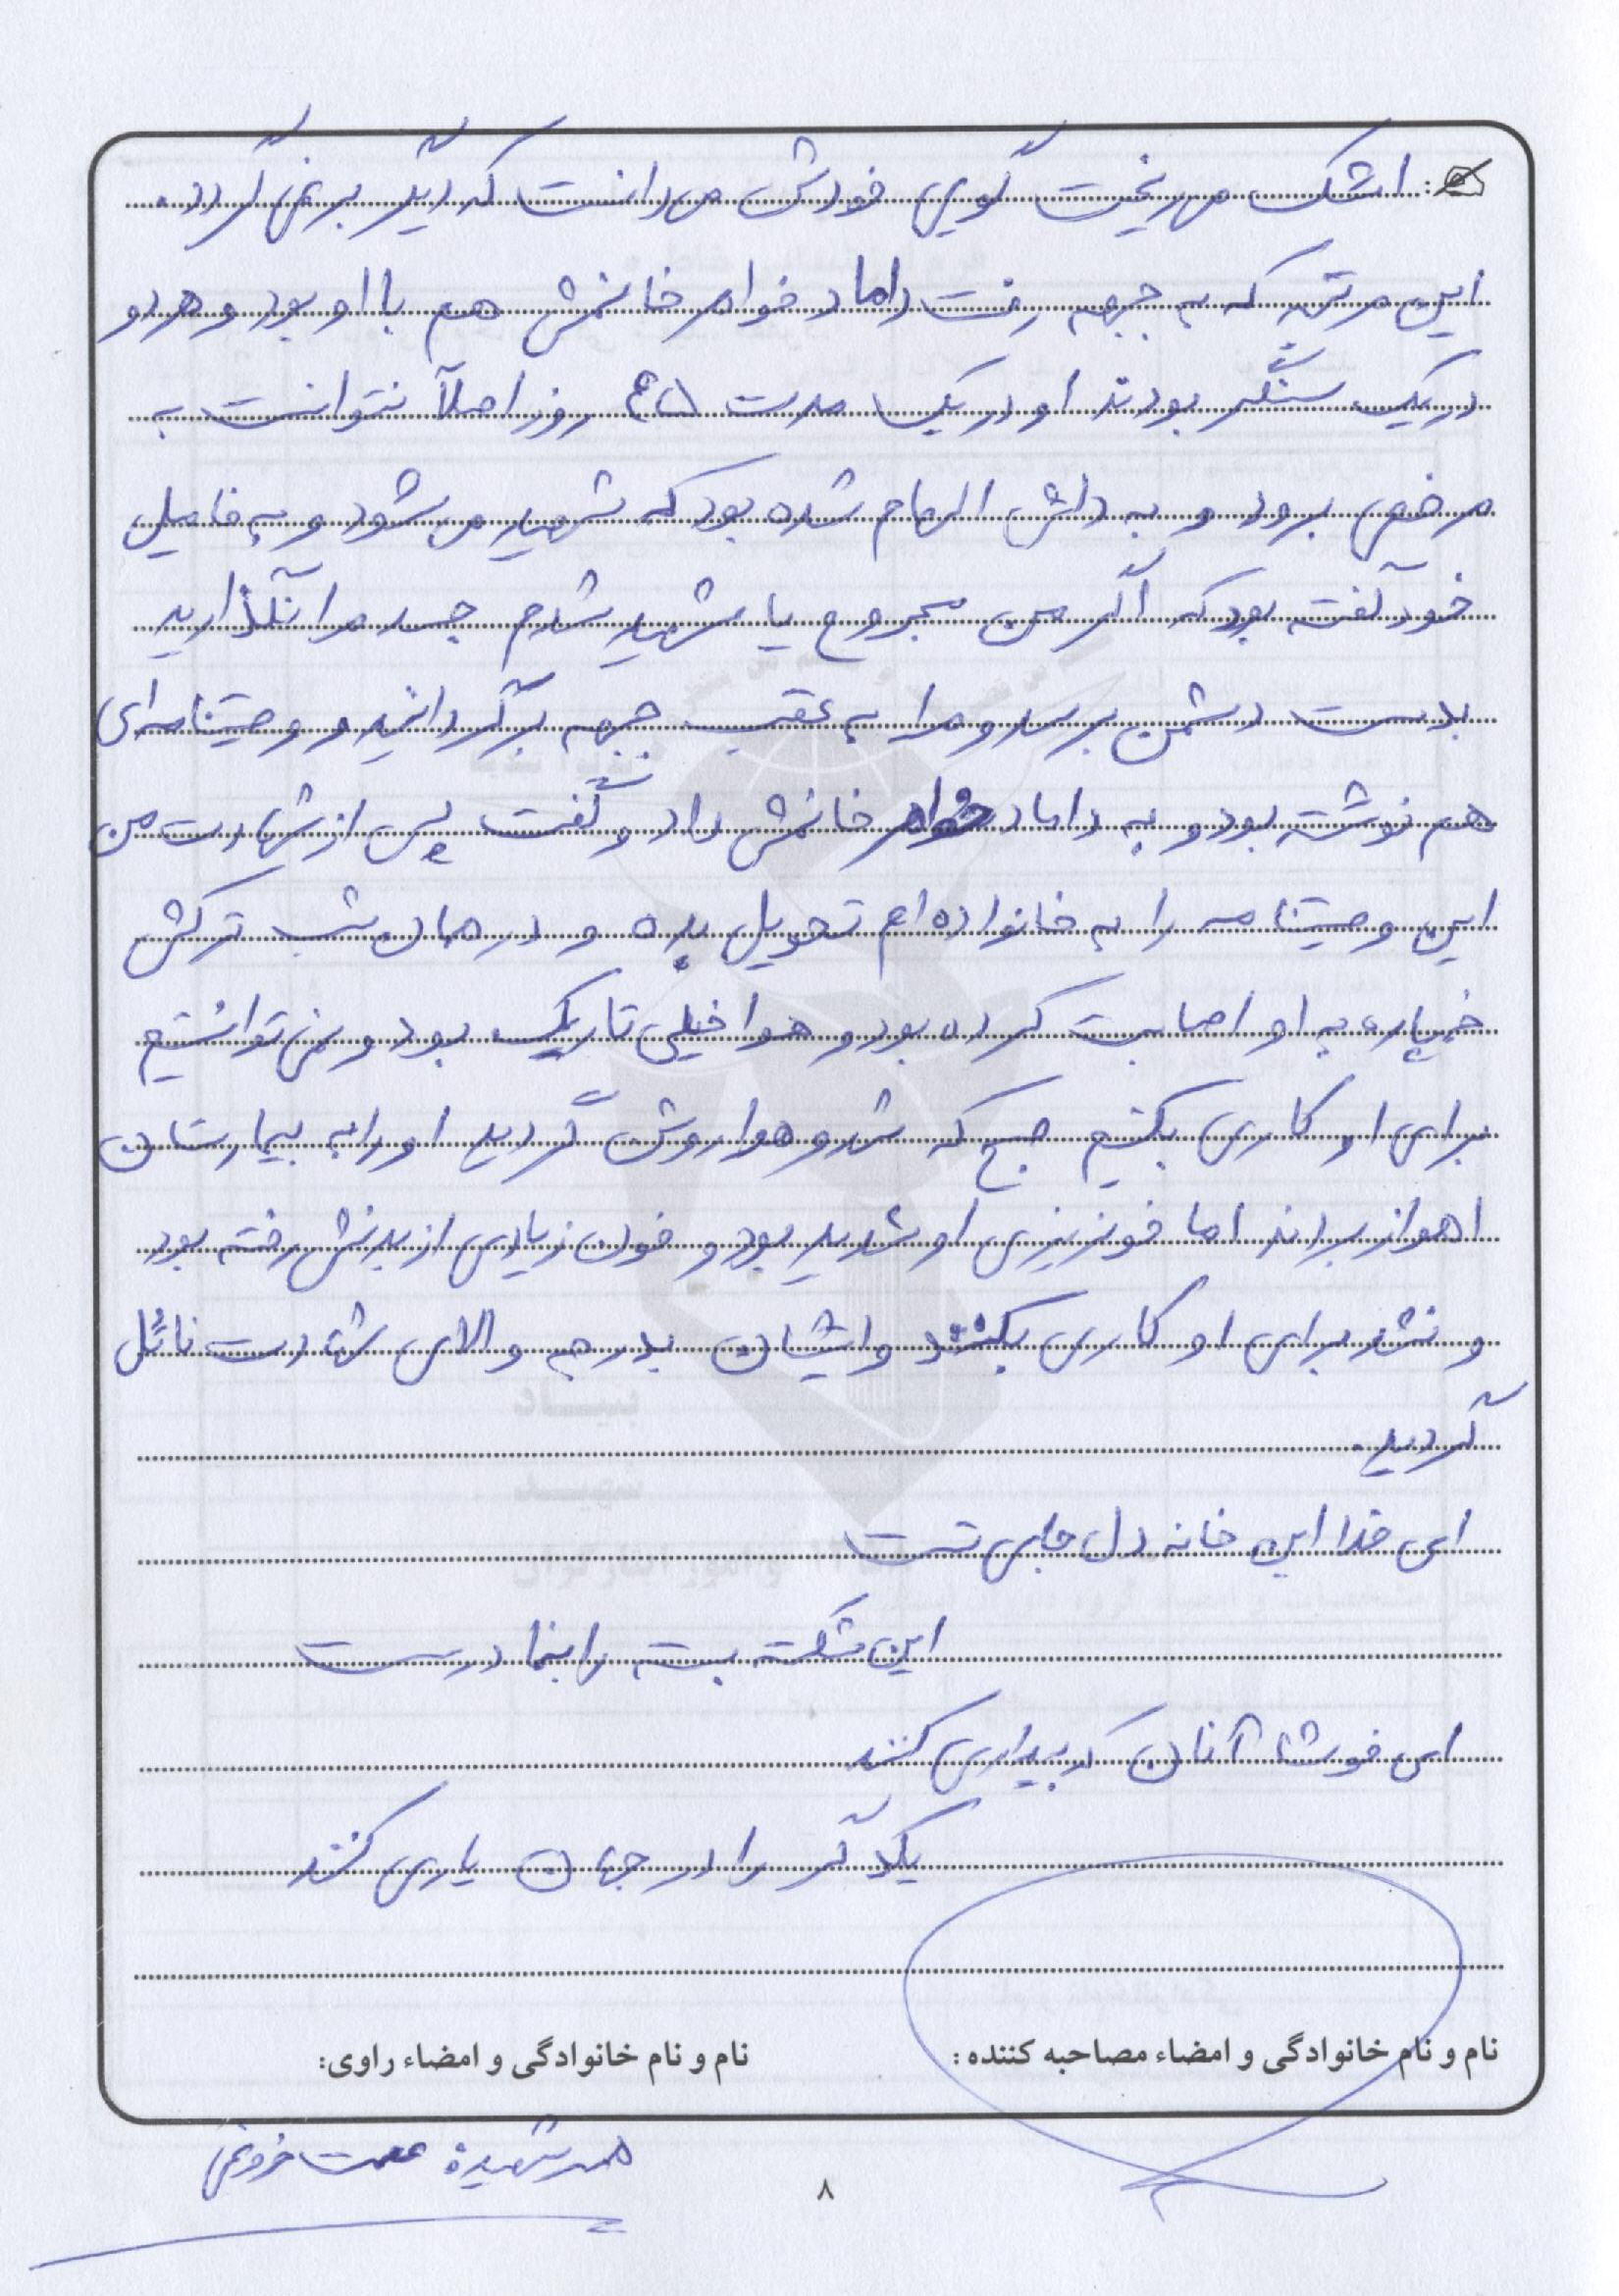 اشک می ریخت گویی خودش می دانست که دیگر بر نمی گردد.
این مرتبه که به جبهه رفت داماد خواهر خانمش هم با او بود و هر دو
در یک سنگر بودند او در یک مدت ۴۵ روز اصلاً نتوانست به
مرخصی برود و به دلش الهام شده بود که شهید می شود و به فامیل
خود گفته بود که اگر من مجروح یا شهید شدم جسد مرا نگذارید
بدست دشمن برسد و مرا به عقب جبهه برگردانید و وصیتنامه ای
هم نوشته بود و به داماد خواهر خانمش داد و گفت پس از شهادت من
این وصیتنامه را به خانواده ام تحویل بده و در همان شب ترکش
خمپاره به او اصابت کرده بود و هوا خیلی تاریک بود و نمی توانستیم
برای او کاری بکنیم صبح که شد و هوا روشن گردید او را به بیمارستان
اهواز بردند اما خونریزی او شدید بود و خون زیادی از بدنش رفته بود
و نشد برای او کاری بکنند و ایشان بدرجه والای شهادت نائل
گردید.
ای خدا این خانه دل جای تست
این شکسته بسته را بنما درست
ای خوشا آنان که بیداری کنند
یکدگر را در جهان یاری کنند
نام و نام خانوادگی و امضاء مصاحبه کننده: نام و نام خانوادگی و امضاء راوی:
همسر شهید عصمت
۸